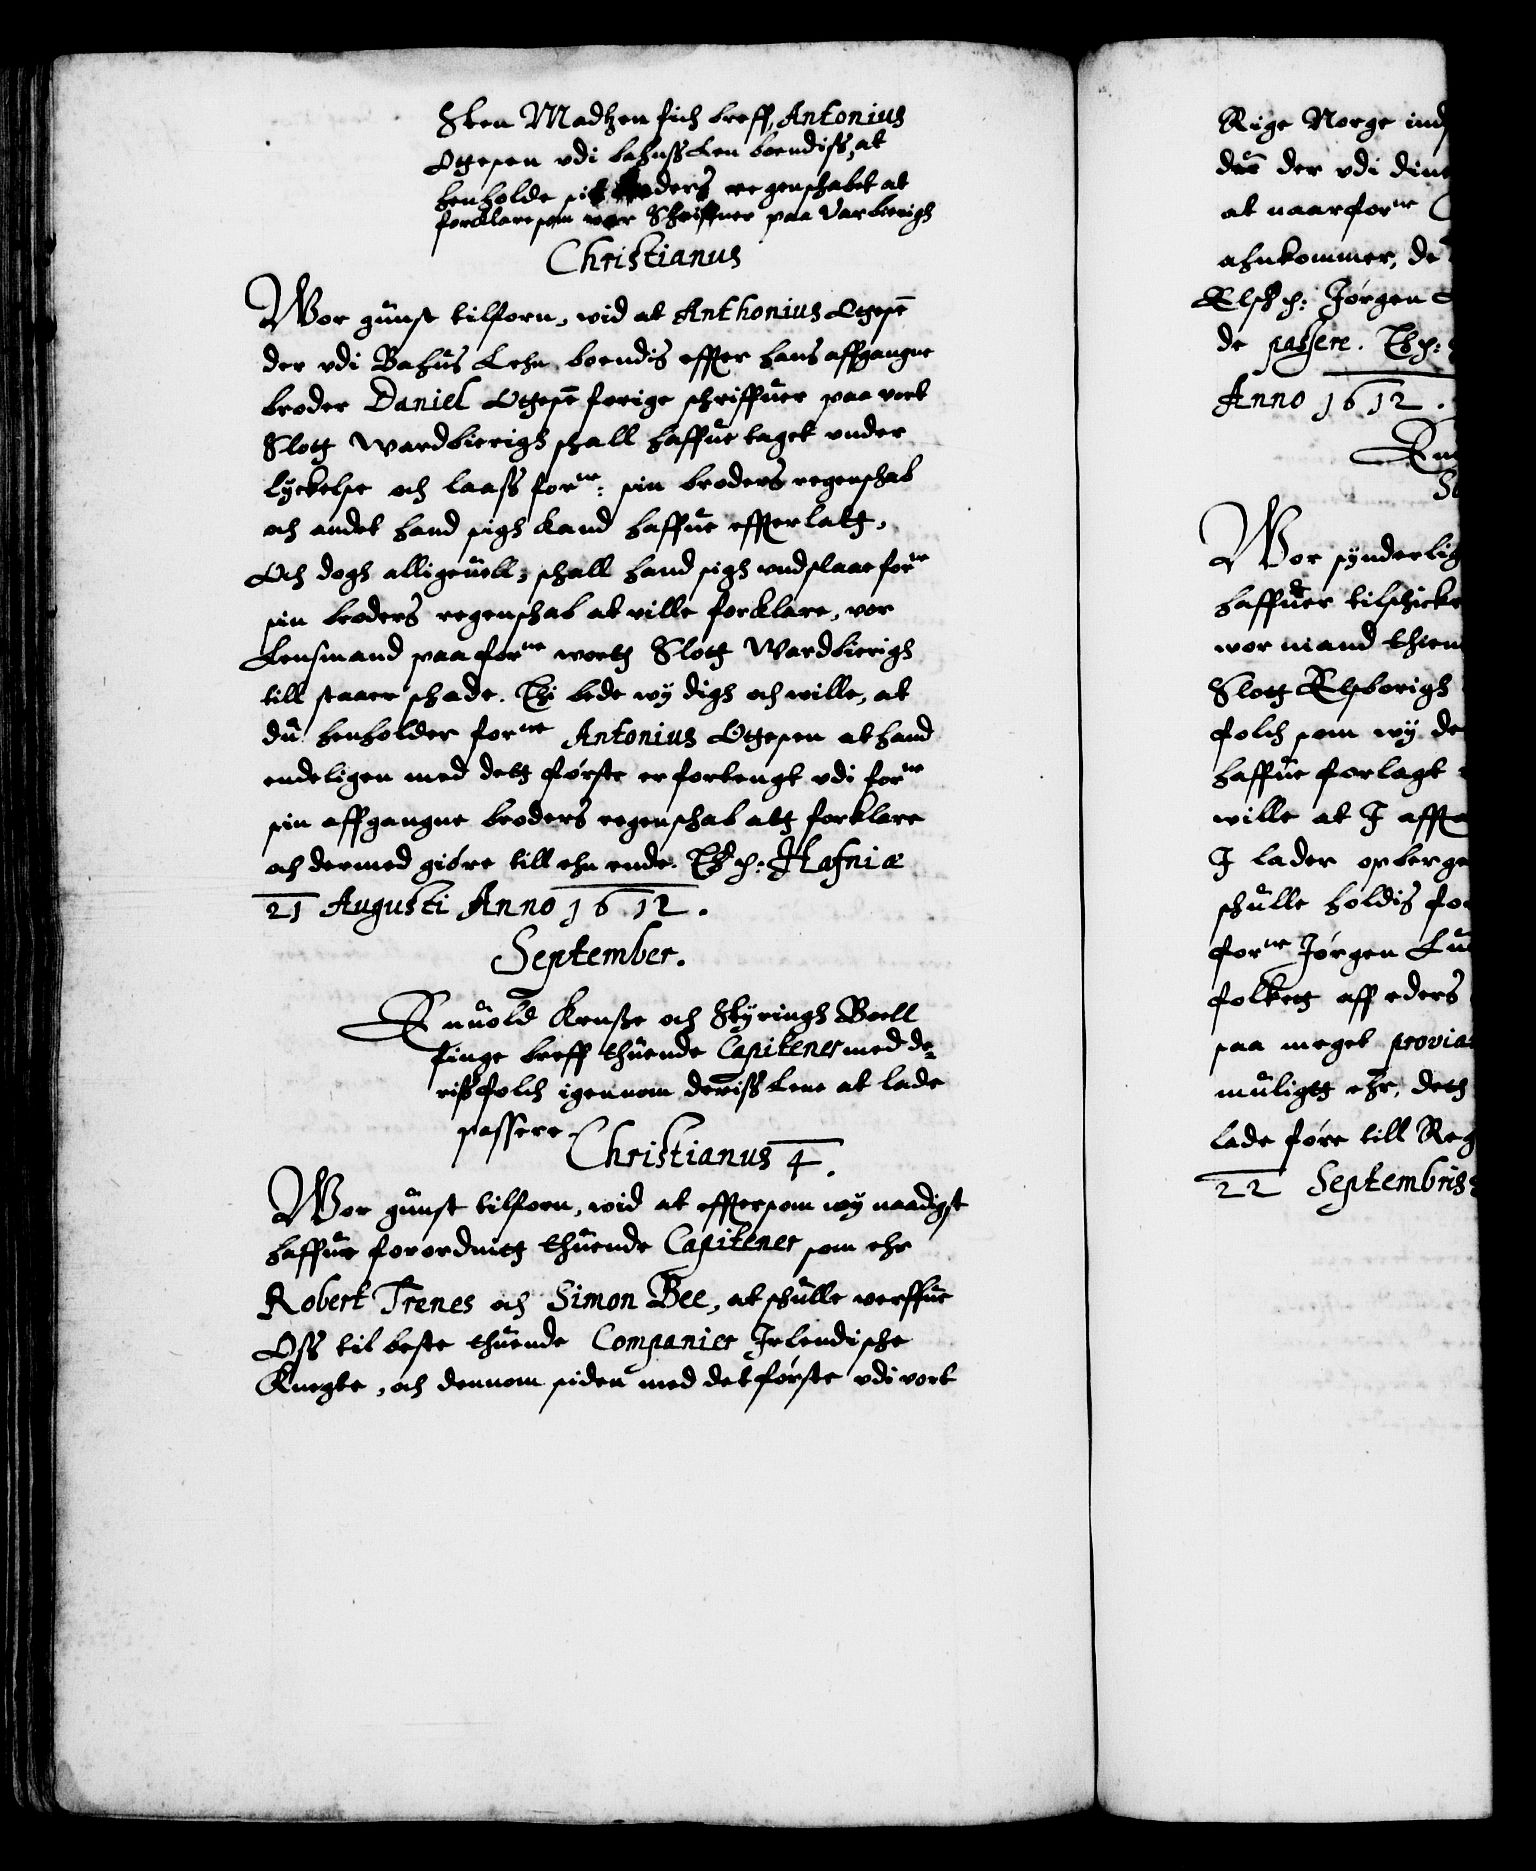 Sten Madtzen fich breff, Antonius
Ottesen vdi bahuss Len boendiss, at
henholde sit broders regenschabet at
forcklare som war Schriffuer paa Varbierigh
Christianus
Wor gunst tilforn, wid at Anthonius Ottesen
der vdi Bahus Lehn boendis effter hans affgangne
broder Daniel Ottesen forige schriffuer paa vort
Slott Wardbierigh schall haffue taget vnder
lyckelse och laass forne: sin broders regenschab
och andet hand sigh kand haffue effterlatt,
Och dogh alligeuell, schall hand sigh vndslaae forne
sin broders regenschab at ville forcklare, vor
Lensmand paa forne wortt Slott Wardbierigh
till staaer schade. Thi bede wy digh och wille, at
du henholder forne Antonius Ottesen at hand
endeligen med dett første er fortengt vdi forne
sin affgangne broders regenschab att forklare
och dermed giøre till ehn ende. Th p: Hafniæ
21 Augusti Anno 1612.
September.
Enuold Kruse och Styringh Boell
finge breff thuende Capitener med de-
riss folch igennom deriss Lene at lade
passere.
Christianus 4.
Wor gunst tilforn, wid at efftersom wy naadigst
haffue forordnitt thuende Capitener som ehr
Robert Trenes och Simon Bee, at schulle werffue
Oss til beste thuende Companier Irlendische
Knegte, och dennom siden med det første vdi vort
Rige Norge ind
der vdi dine
at naar forne
ahnkommer, de
Elsb: Jørgen
de passere. Th p:
Anno 1612.
Wor synderlig
haffuer tilschicke
wor mand
Slott Elsborigh
folch som wy de
haffue forlagt
wille at I affta
I lader opberge
schulle holdis for
forne Jørgen Lu
folkett aff eders
saa meget provia
muligtt ehr, dett
lade føre till Reg
22 Septembris